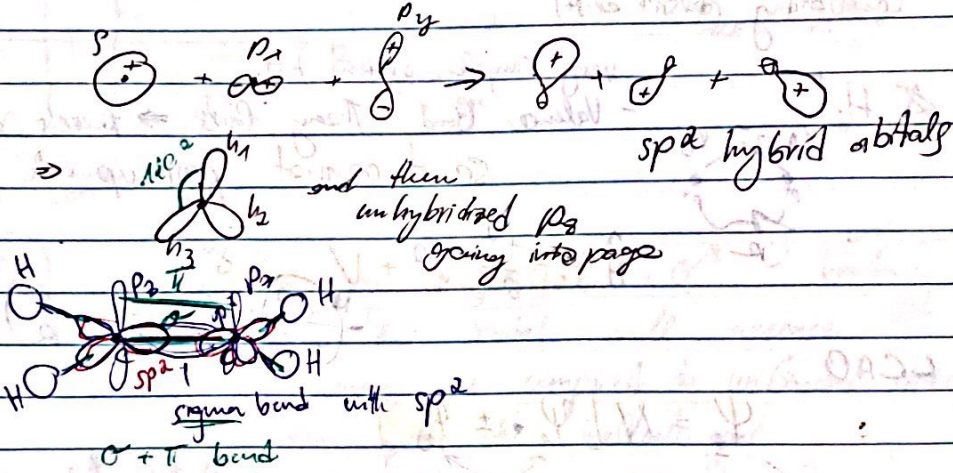 s Px Py
+ + + ⇒ + + + +
sp² hybrid orbitals
⇒ 120° h1 and then
h2 unhybridized pz
h3 going into page
H Pz π Pz H
σ
H sp² H
sigma bond with sp²
σ + π bond
LCAO